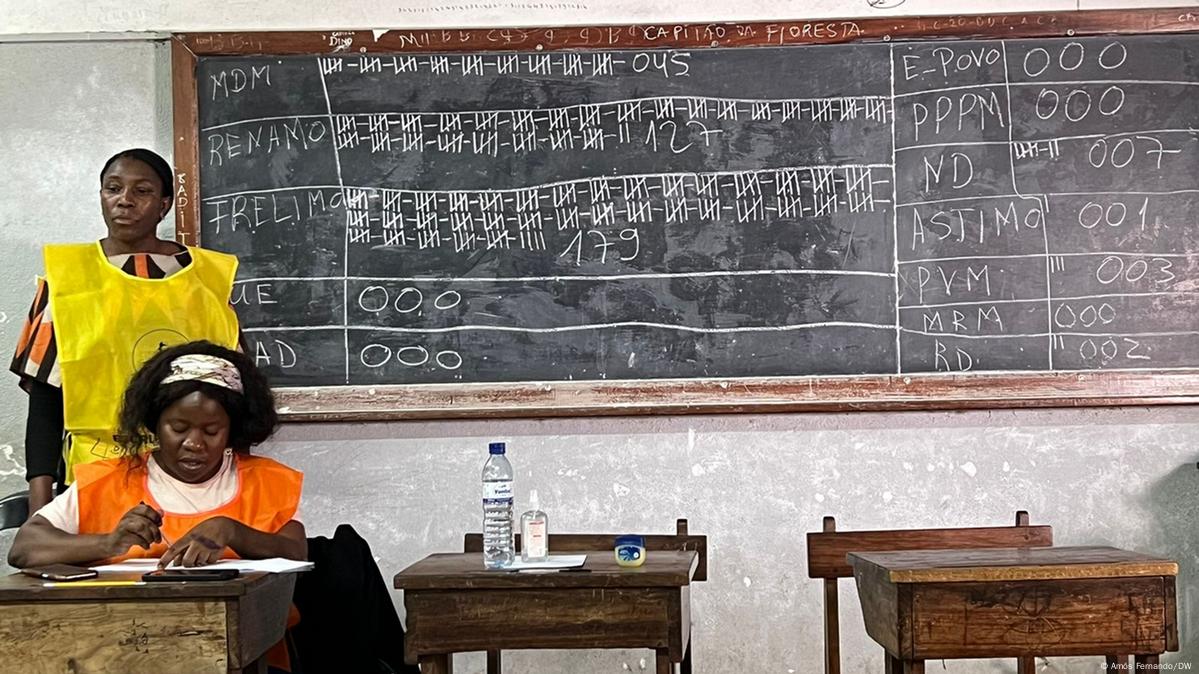 CAPITÃO DA FLORESTA
DINO
MDM 045
RENAMO 127
FRELIMO 179
UE 000
AD 000
E-POVO 000
PPPM 000
ND 007
ASTIMO 001
PVM 003
MRM 000
RD 002
© Amós Fernando/DW